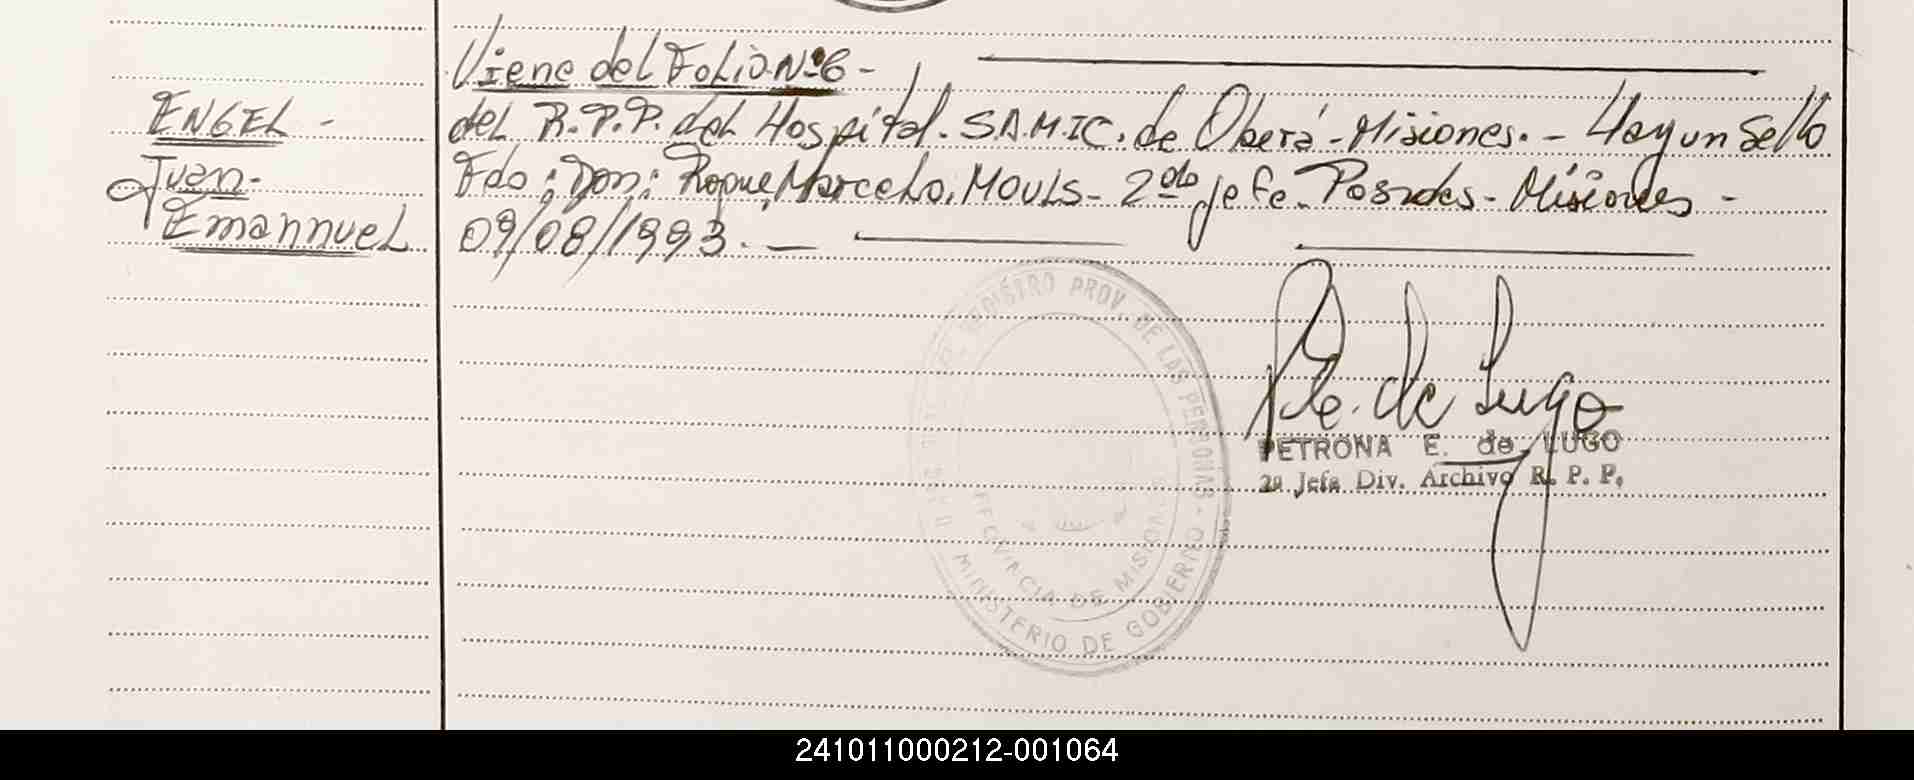 Viene del Folio Nº 6 -
ENGEL -
del R.P.P. del Hospital. SAMIC. de Oberá - Misiones. - Hay un Sello
Juan -
Fdo: Don: Roque, Marcelo, MOULS - 2do Jefe. Posadas - Misiones -
Emannuel
09/08/1993. -
REGISTRO PROV. DE LAS PERSONAS - MINISTERIO DE GOBIERNO
PROVINCIA DE MISIONES
Pe. de Lugo
PETRONA E. de LUGO
2ª Jefa Div. Archivo R. P. P.
241011000212-001064